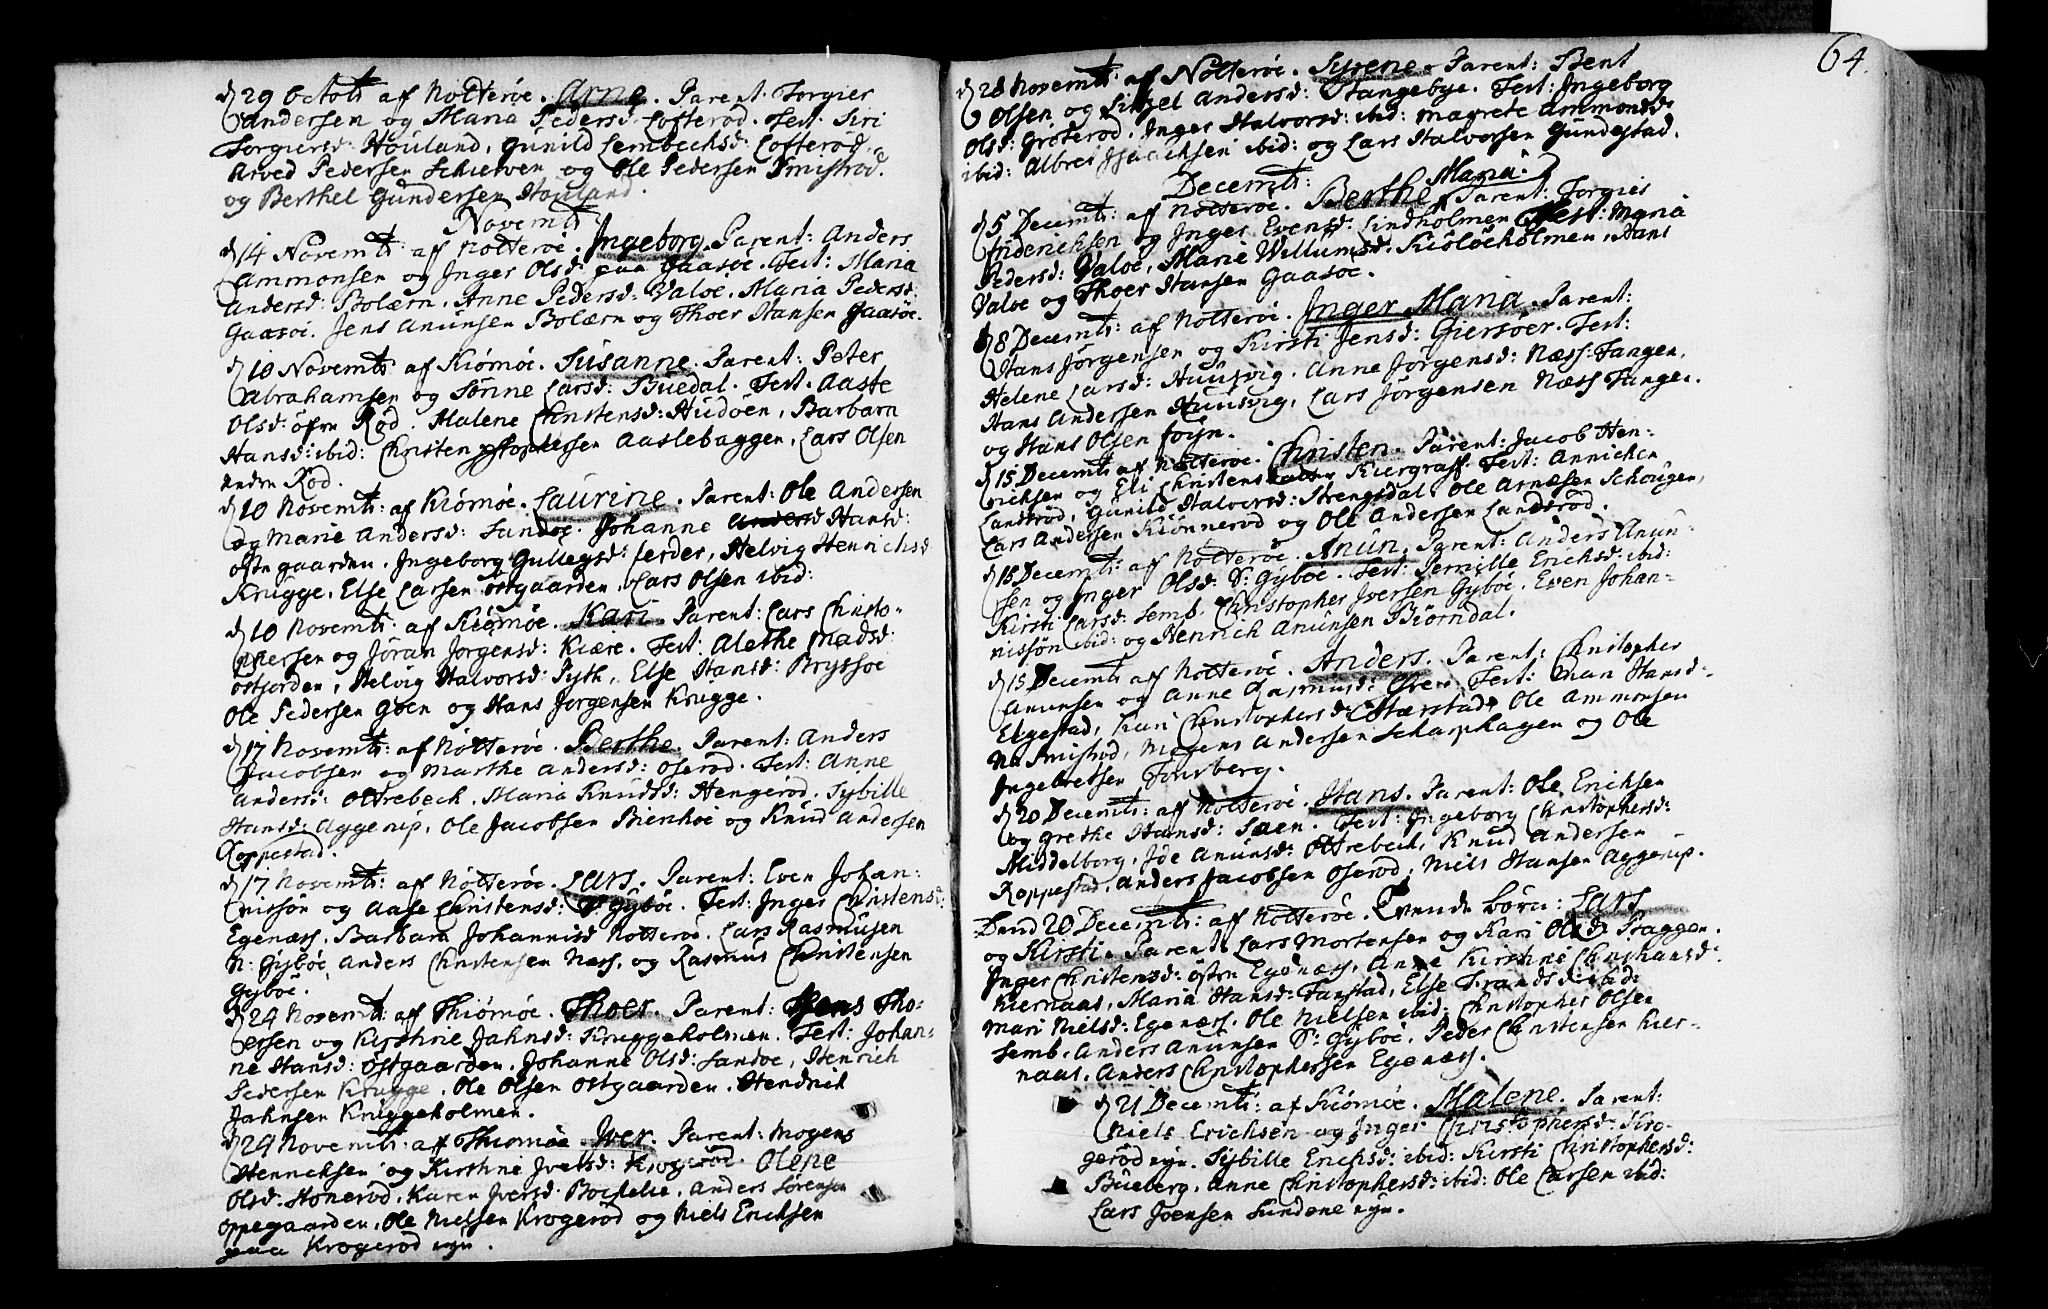 d 29 Octobr af Nøtterøe. Arne. Parent: Torgier
Andersen og Maria Pedersd: Lofterød. Test. Siri
Torgiersd: Houland, Gunild Lembechsd: Lofterød.
Arved Pedersen Schierven og Ole Pedersen Smistrod.
og Berthel Gundersen Houland.
Novembr
d 14 Novembr: af Nøtterøe. Ingeborg. Parent: Anders
Ammonsen og Inger Olsd: paa Gaasøe. Test: Maria
Andersd: Bolærn. Anne Pedersd: Valøe. Maria Pedersd:
Gaasøe. Jens Anunsen Bolærn og Thoer Hansen Gaasøe.
d 10 Novembr af Kiømøe. Susanne. Parent: Peter
Abrahamsen og Sønne Larsd: Buedal. Test. Aaste
Olsd: øfre Rød. Malene Christensd: Hudøen, Barbara
Hansd: ibid: Christen Aaslebaggen, Lars Olsen
nedre Rød.
d 10 Novembr: af Kiømøe. Laurine. Parent: Ole Andersen
og Marie Andersd: Sandøe. Johanne Hansd:
østgaarden. Ingeborg Gullegsd: ferder, Helvig Henrichsd
Krugge. Else Larsen østgaarden. Lars Olsen ibid:
d 10 Novembr: af Kiømøe. Kari. Parent: Lars Christo-
phersen og Jøran Jørgensd: Kiære. Test: Alethe Madsd:
østjorden, Helvig Halvorsd: Pyth, Else Hansd: Bryssøe
Ole Pedersen Goen og Hans Jørgensen Krugge.
d 17 Novembr: af Nøtterøe. Berthe. Parent: Anders
Jacobsen og Marthe Andersd: Oserød. Test: Anne
Andersd: Oltrebeck. Maria Knudsd: Hengerød. Sybille
Hansd: Aggerup. Ole Jacobsen Bienhøe og Knud Andersen
Roppestad.
d 17 Novembr: af Nøtterøe. Lars. Parent: Even Johan-
nissøn og Aase Christensd: S: Gybøe. Test: Inger Christensd:
Egenæss. Barbara Johannisd Nøtterøe. Lars Rasmusen
N: Gybøe Anders Christensen Næss, og Rasmus Christensen
Gybøe.
d 24 Novembr af Thiømøe. Thoer. Parent: Jens Tho-
ersen og Kirstine Jahnsd: Kruggeholmen. Test: Johan-
ne Hansd: østgaarden. Johanne Olsd: Sandøe, Henrich
Pedersen Krugge. Ole Olsen østgaarden. Hendrich
Jahnsen Kruggeholmen.
d 24 Novembr: af Thiømøe. Iver. Parent: Mogens
Henrichsen og Kirstine Iversd: Krogerød. Olene
Olsd: Honerød. Karen Iversd: . Anders Sørensen
Oppegaarden. Ole Nielsen Krogerød og Niels Erichsen
paa Krogerød eyn.
64.
d 28 Novembr: af Nøtterøe. Syrene. Parent: Bent
Olsen og Sitzel Andersd: Stangebye. Test: Ingeborg
Olsd: Grøterød. Inger Halvorsd: ibid: Magrete Ammonsd:
ibid: Albret ibid: og Lars Halvorsen Gundestad.
Decembr:
d 5 Decembr: af Nøtterøe. Berthe Maria. Parent: Torgies
Friderichsen og Inger Evensd: Lindholmen. Test: Maria
Pedersd: Valøe, Marie Willumsd: Kiøløeholmen, Hans
Valøe og Thoer Hansen Gaasøe.
d 8 Decembr: af Nøtterøe. Inger Maria. Parent:
Hans Jørgensen og Kirsti Jensd: Giersøer. Test:
Helene Larsd: Huusvig. Anne Jørgensd: Næss Tangen,
Hans Andersen Huusvig, Lars Jørgensen Næss Tangen.
og Hans Olsen føyn.
d 15 Decembr af Nøtterøe. Christen. Parent: Jacob Hen-
richsen og Eli Christensdatter Kiergraff. Test: Annichen
Landsrød, Gunild Halvorsd: Strengsdal. Ole Arnesen Schougen,
Lars Andersen Kiønnerød og Ole Andersen Landsrød.
d 15 Decembr: af Nøtterøe. Anun. Parent: Anders Anun-
sen og Inger Olsd: S: Gybøe. Test: Pernille Erichsd: ibid:
Kirsti Larsd: Semb. Christopher Iversen Gybøe. Even Johan-
nissøn ibid: og Henrich Anunsen Biørndal.
d 15 Decembr af Nøtterøe. Anders. Parent: Christopher
Anunsen og Anne Rasmusd: Øren. Test: Mari Hansd:
Elgestad, Kari Christophersd: Hærstad, Ole Ammonsen
N: Smistrød, Mogens Andersen Scharphagen og Ole
Ingebretsen Tonsberg.
d 20 Decembr: af Nøtterøe. Hans. Parent: Ole Erichsen
og Grethe Hansd: Søen. Test: Ingeborg Christophersd:
Middelborg, Ide Anunsd: Oltrebeck, Knud Andersen
Roppestad, Anders Jacobsen Oserød, Niels Hansen Aggerup.
Dend 20 Decembr: af Nøtterøe. Tvende børn: Lars
og Kirsti. Parent: Lars Mortensen og Kari Olsd: Braggen.
Inger Christensd: østre Egenæss, Anne Kirstine Christiansd:
Kiernaas, Maria Hansd: Fanstad, Else
Mari Nielsd: Egenæss. Ole Nielsen ibid: Christopher Olsen
Semb. Anders Anunsen S: Gybøe, Peder Christensen Kier-
naas. Anders Christophersen Egenæss.
d 21 Decembr: af Kiømøe. Malene. Parent:
Niels Erichsen og Inger Christophersd: Kro-
gerød eyn. Sybille Erichsd: ibid: Kirsti Christophersd:
Bueberg, Anne Christophersd: ibid: Ole Larsen ibid:
Lars Joensen Sundene eyn.